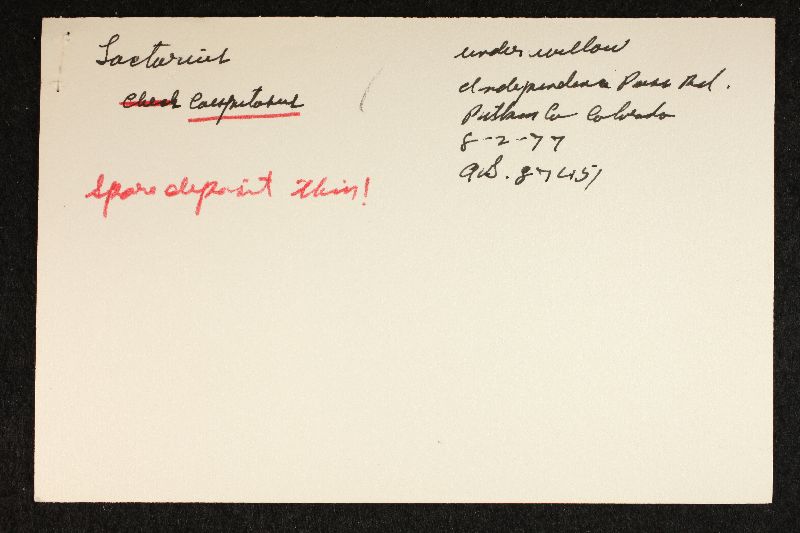 Lactarius
Check Caespitosus
Spore deposit thin!
under willow
Independence Pass Rd.
Pitkin Co Colorado
8-2-77
AHS. 87451